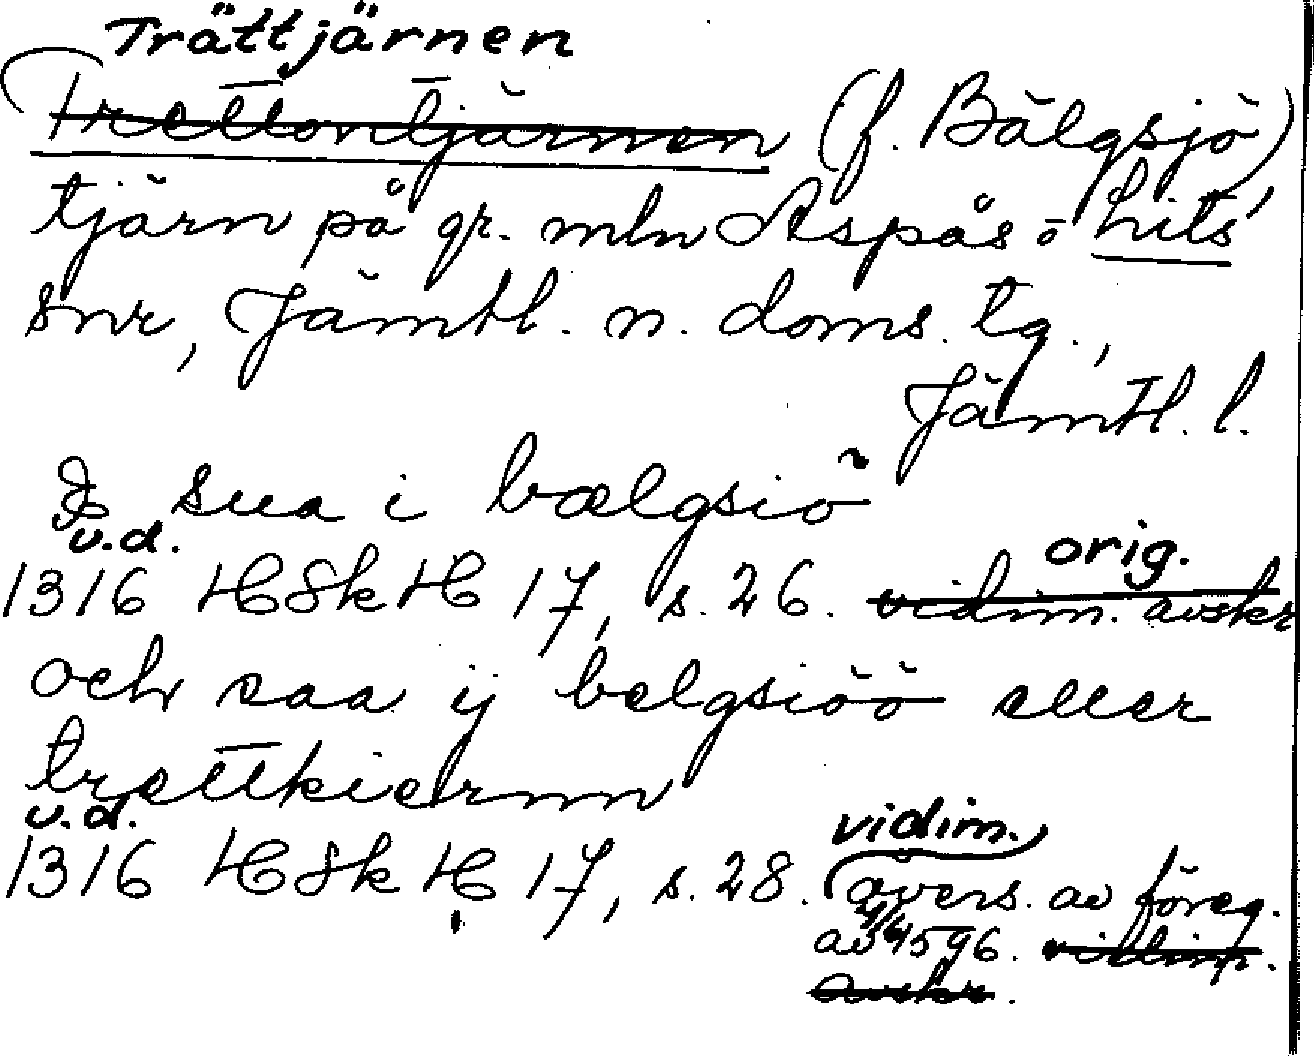 Trättjärnen
Trettontjärnen (f. Bälgsjö)
tjärn på gr. mln Aspås o hits
snr, Jämtl. n. doms. tg.,
Jämtl. l.
sua i bælgsiö
u.d. orig.
1316 HSkH 17, s. 26. vidim. avskr
och saa ij belgsiöö eller
trettkiernn
u.d. vidim.
1316 HSkH 17, s. 28. övers. av föreg.
av 1596. vidim.
avskr.